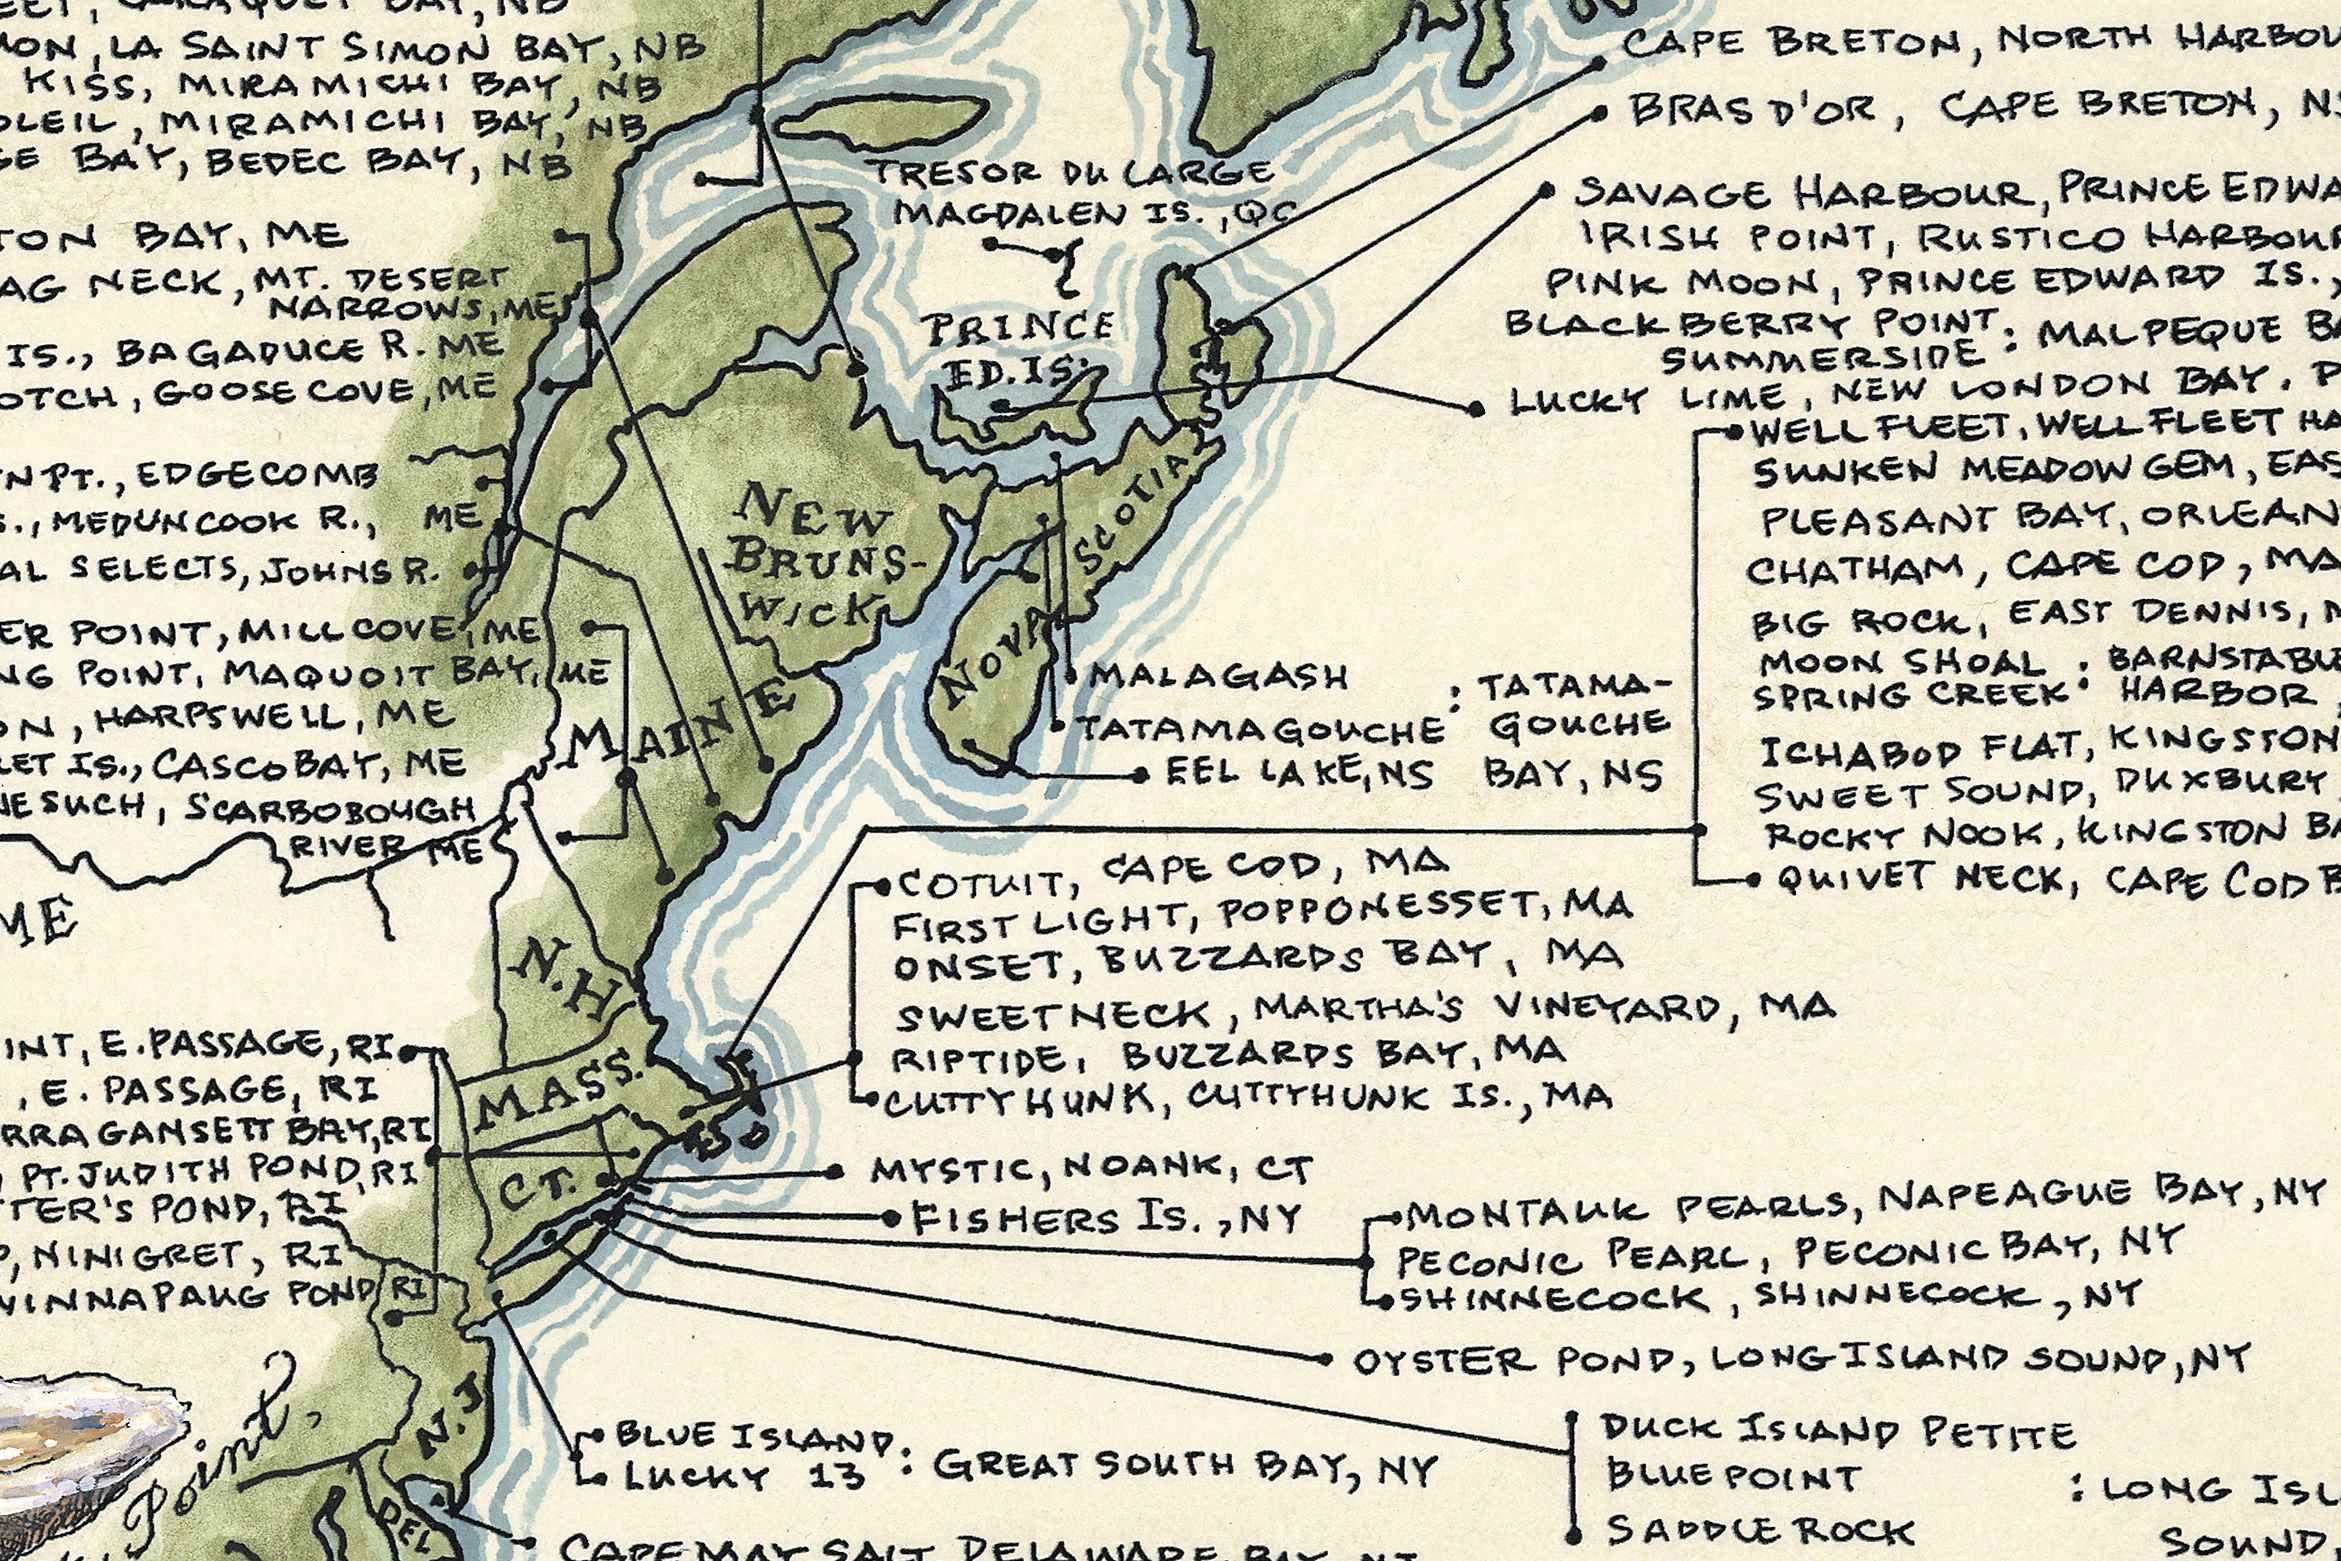 LA SAINT SIMON BAY, NB
KISS, MIRAMICHI BAY, NB
MIRAMICHI BAY, NB
BAY, BEDEC BAY, NB
BAY, ME
NECK, MT. DESERT
NARROWS, ME
IS., BAGADUCE R. ME
GOOSE COVE, ME
PT., EDGECOMB
MEDUNCOOK R., ME
SELECTS, JOHNS R.
POINT, MILL COVE, ME
POINT, MAQUOIT BAY, ME
HARPSWELL, ME
IS., CASCO BAY, ME
SCARBOBOUGH
RIVER ME
E. PASSAGE, RI
, E. PASSAGE, RI
BAY, RI
PT. JUDITH POND, RI
POND, RI
NINIGRET, RI
POND RI
Point,
TRESOR DU LARGE
MAGDALEN IS., QC
PRINCE
ED. IS.
NEW
BRUNS-
WICK
NOVA SCOTIA
MAINE
N.H.
MASS.
CT.
N.J.
DEL
CAPE BRETON, NORTH
BRAS D'OR, CAPE BRETON,
SAVAGE HARBOUR, PRINCE
IRISH POINT, RUSTICO
PINK MOON, PRINCE EDWARD IS.,
BLACKBERRY POINT : MALPEQUE
SUMMERSIDE
LUCKY LIME, NEW LONDON BAY.
WELLFLEET, WELLFLEET
SUNKEN MEADOW GEM,
PLEASANT BAY,
CHATHAM, CAPE COD, MA
BIG ROCK, EAST DENNIS,
MOON SHOAL :
SPRING CREEK HARBOR
ICHABOD FLAT, KINGSTON
SWEET SOUND, DUXBURY
ROCKY NOOK, KINGSTON
QUIVET NECK, CAPE COD
MALAGASH : TATAMA-
TATAMAGOUCHE GOUCHE
EEL LAKE, NS BAY, NS
COTUIT, CAPE COD, MA
FIRST LIGHT, POPPONESSET, MA
ONSET, BUZZARDS BAY, MA
SWEET NECK, MARTHA'S VINEYARD, MA
RIPTIDE, BUZZARDS BAY, MA
CUTTYHUNK, CUTTYHUNK IS., MA
MYSTIC, NOANK, CT
FISHERS IS., NY
MONTAUK PEARLS, NAPEAGUE BAY, NY
PECONIC PEARL, PECONIC BAY, NY
SHINNECOCK, SHINNECOCK, NY
OYSTER POND, LONG ISLAND SOUND, NY
BLUE ISLAND : GREAT SOUTH BAY, NY
LUCKY 13
DUCK ISLAND PETITE
BLUEPOINT : LONG
SADDLE ROCK SOUND,
CAPE MAY SALT, DELAWARE BAY, NJ